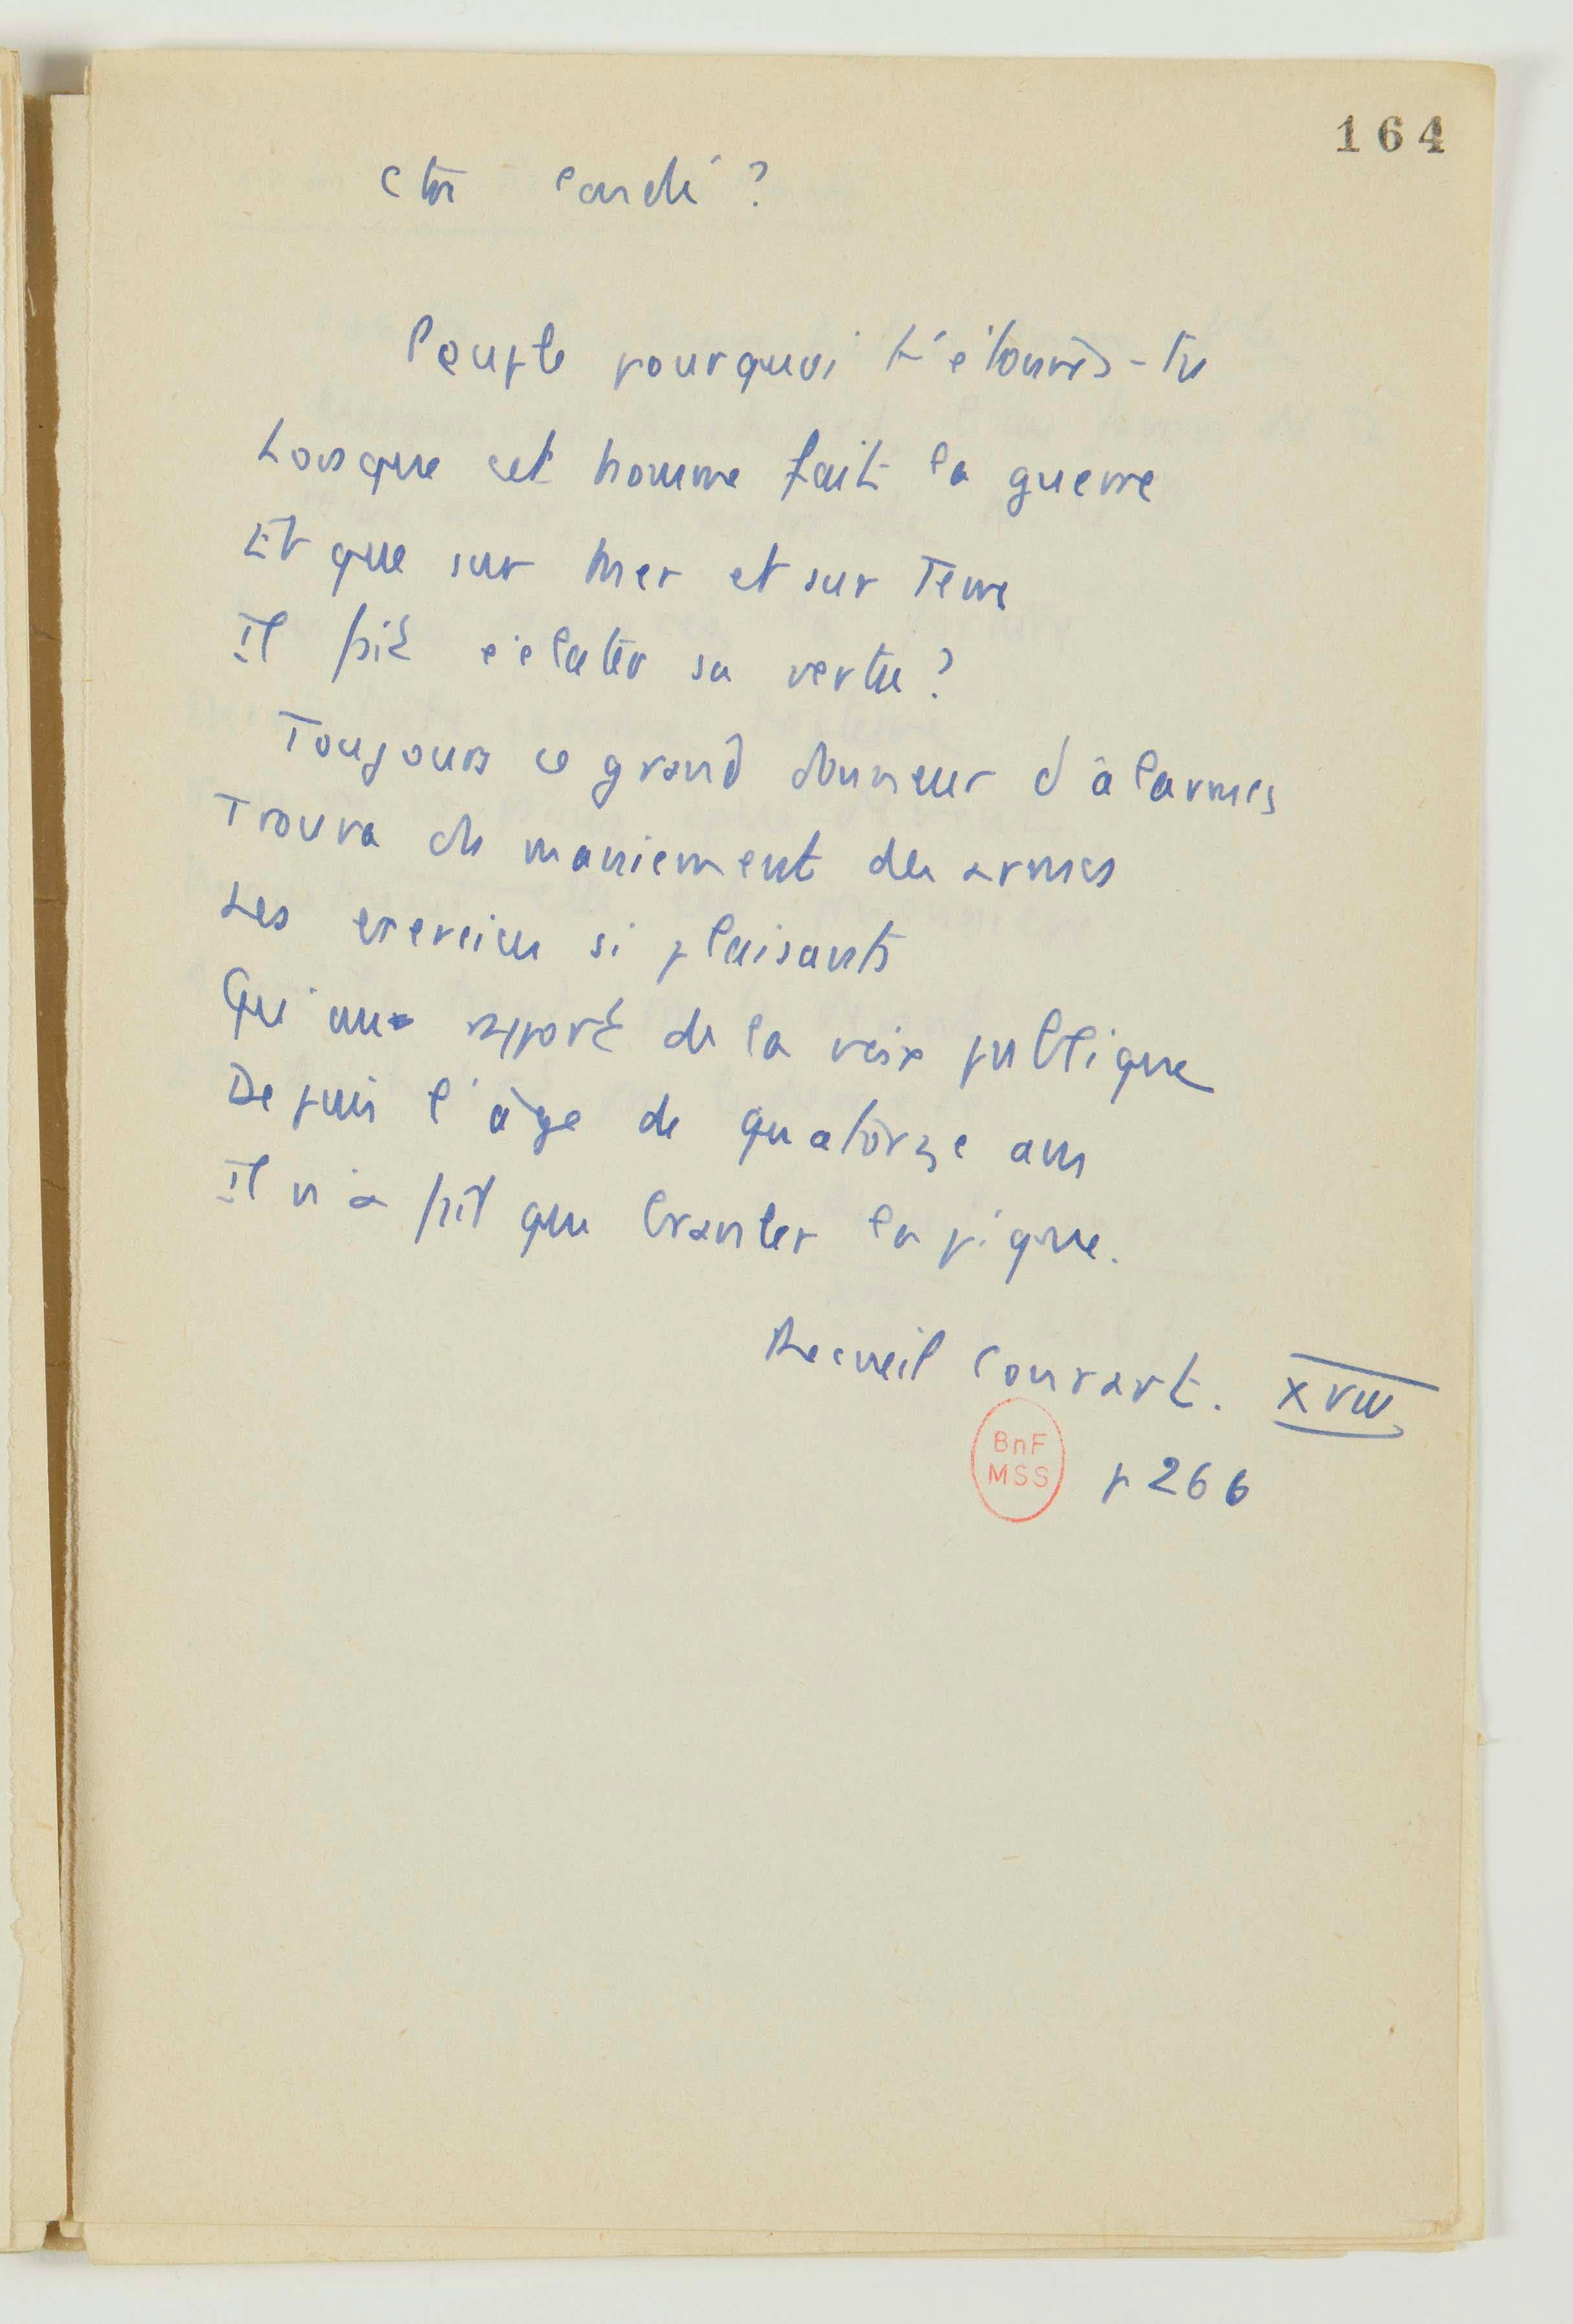 164
Ctn Condé ?
Peuple pourquoi t'étonnes-tu
Lorsque cet homme fait la guerre
Et que sur mer et sur Terre
Il fait éclater sa vertu ?
Toujours ce grand donneur d'alarmes
Trouva du maniement des armes
Les exercices si plaisants
Qu'au rapport de la voix publique
Depuis l'âge de quatorze ans
Il n'a fait que branler la pique.
Recueil Conrart. XVIII
BnF
MSS
p 266